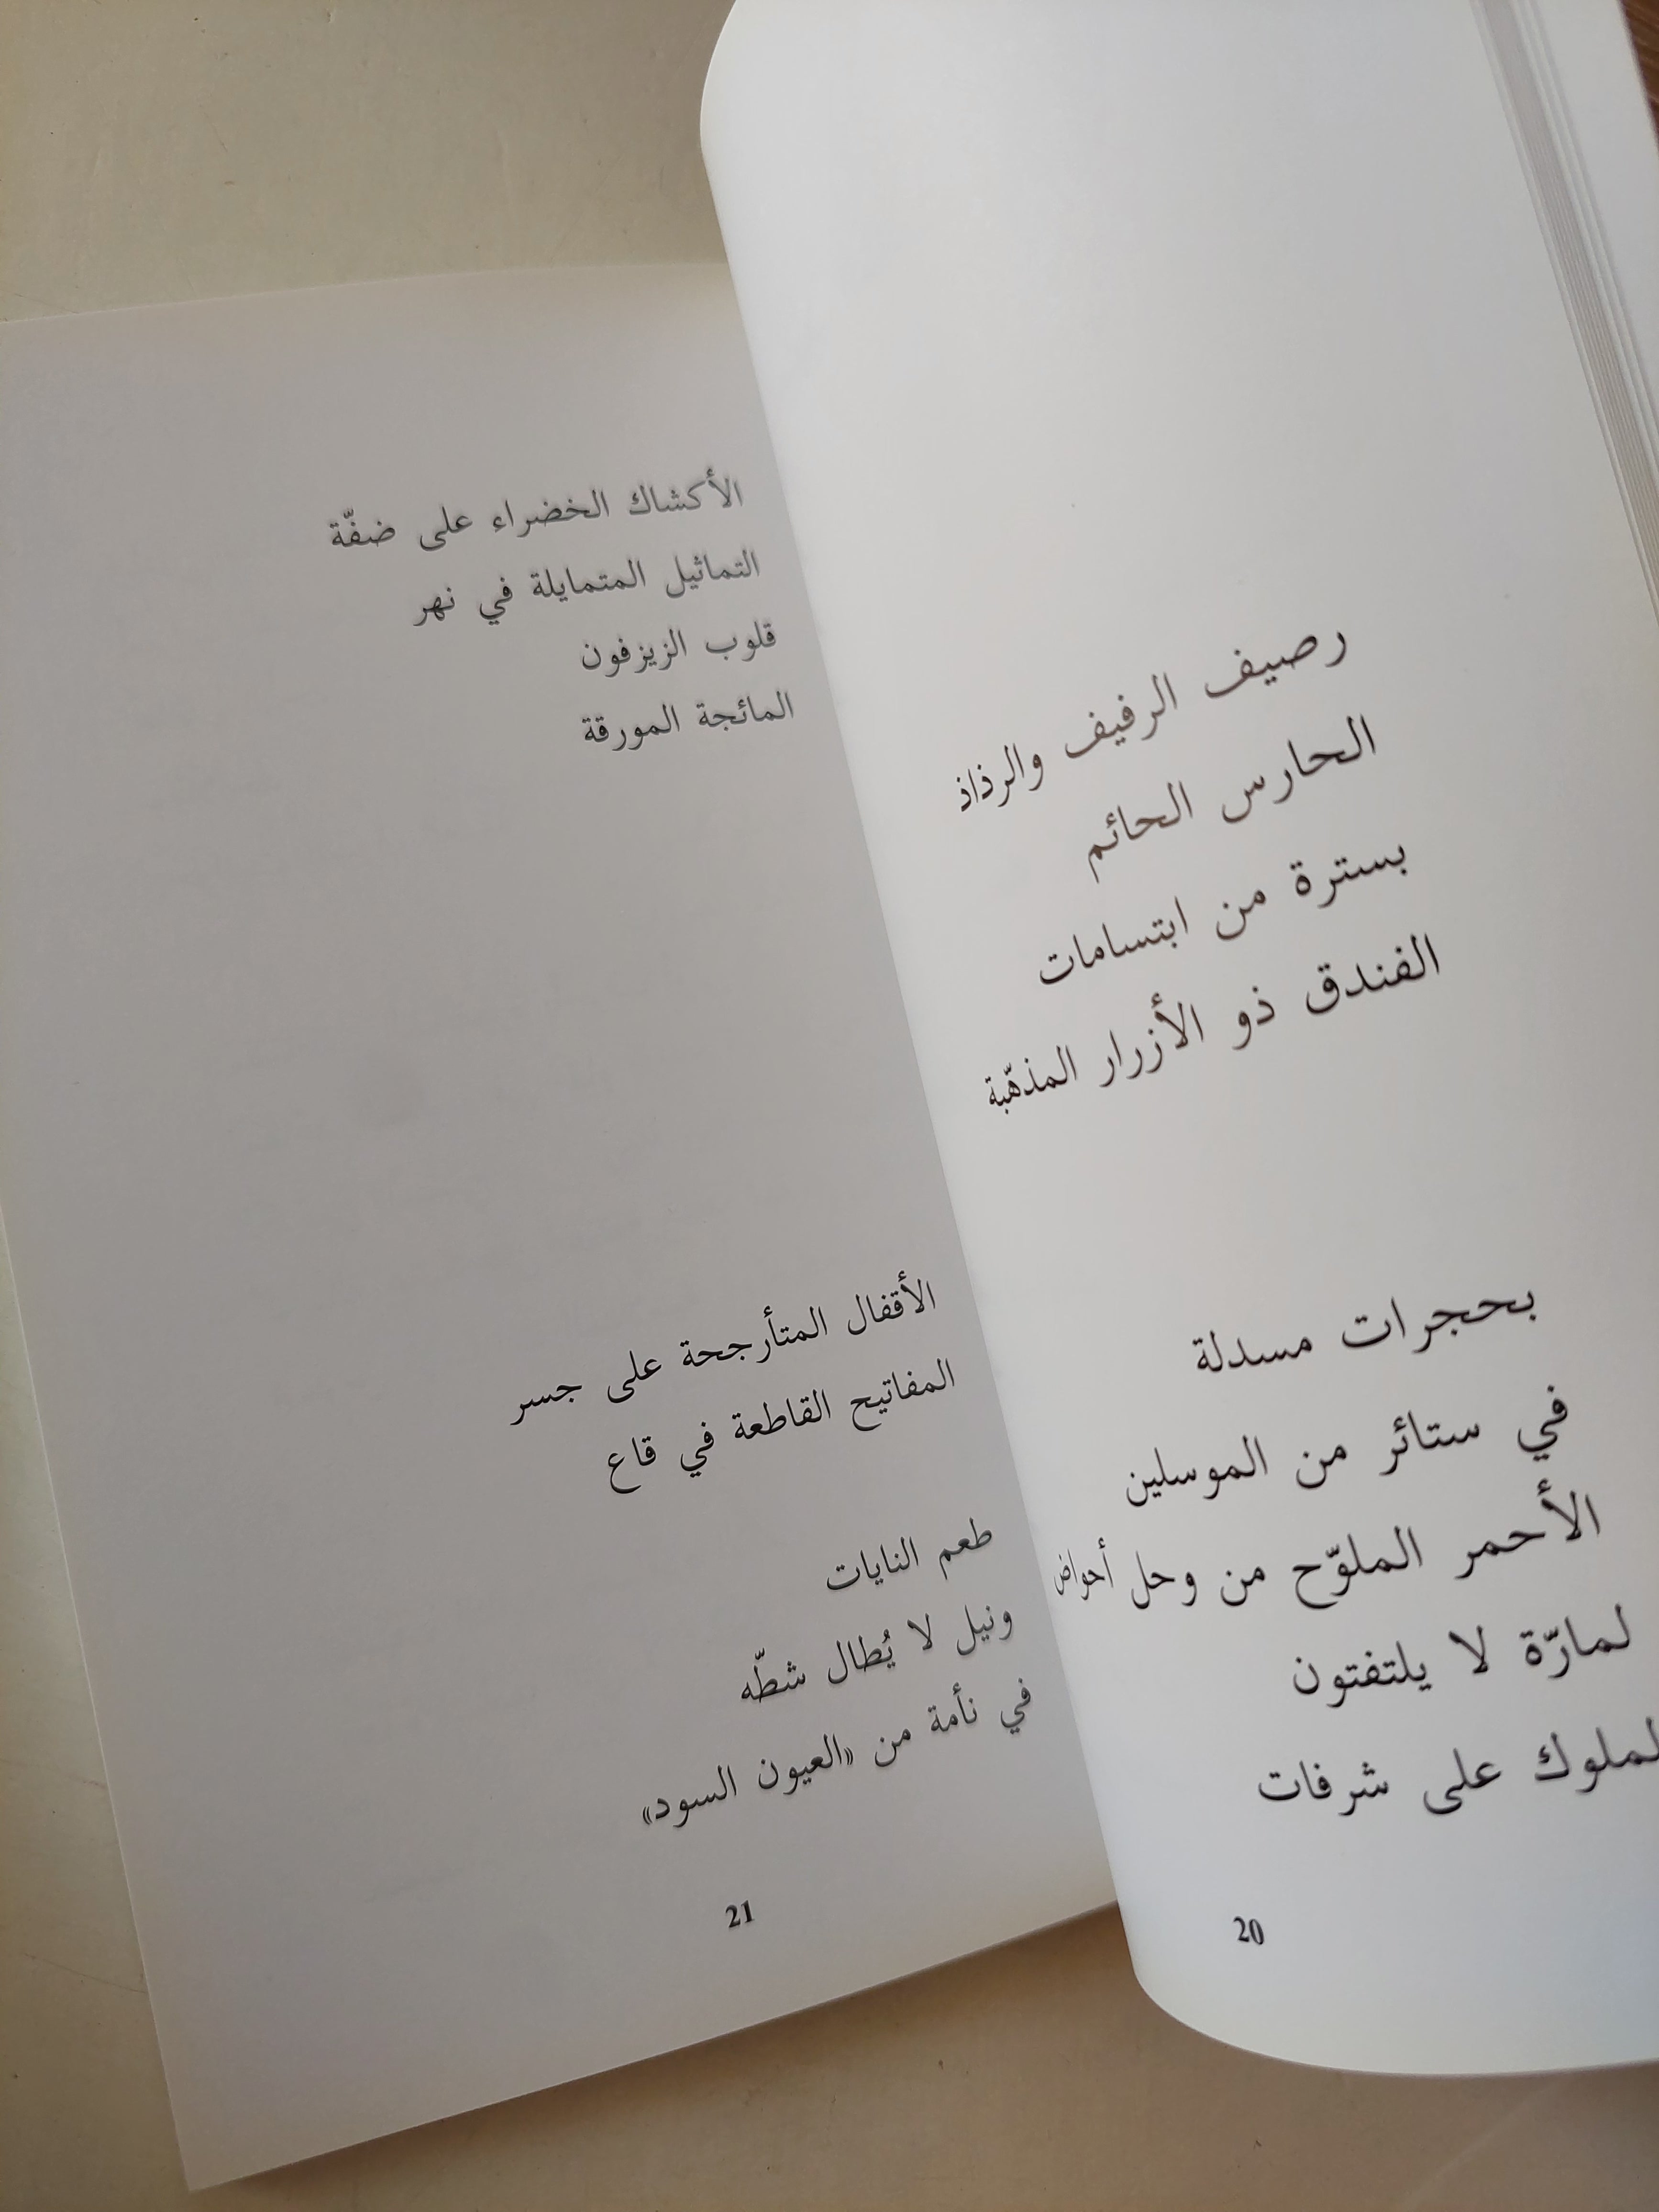 رصيف الرفيف والرذاذ
الحارس الحائم
بسترة من ابتسامات
الفندق ذو الأزرار المذهّبة
بحجرات مسدلة
في ستائر من الموسلين
الأحمر الملوّح من وحل أحواض
لمارّة لا يلتفتون
لملوك على شرفات
20
الأكشاك الخضراء على ضفّة
التماثيل المتمايلة في نهر
قلوب الزيزفون
المائجة المورقة
الأقفال المتأرجحة على جسر
المفاتيح القاطعة في قاع
طعم النايات
ونيل لا يُطال شطّه
في نأمة من «العيون السود»
21